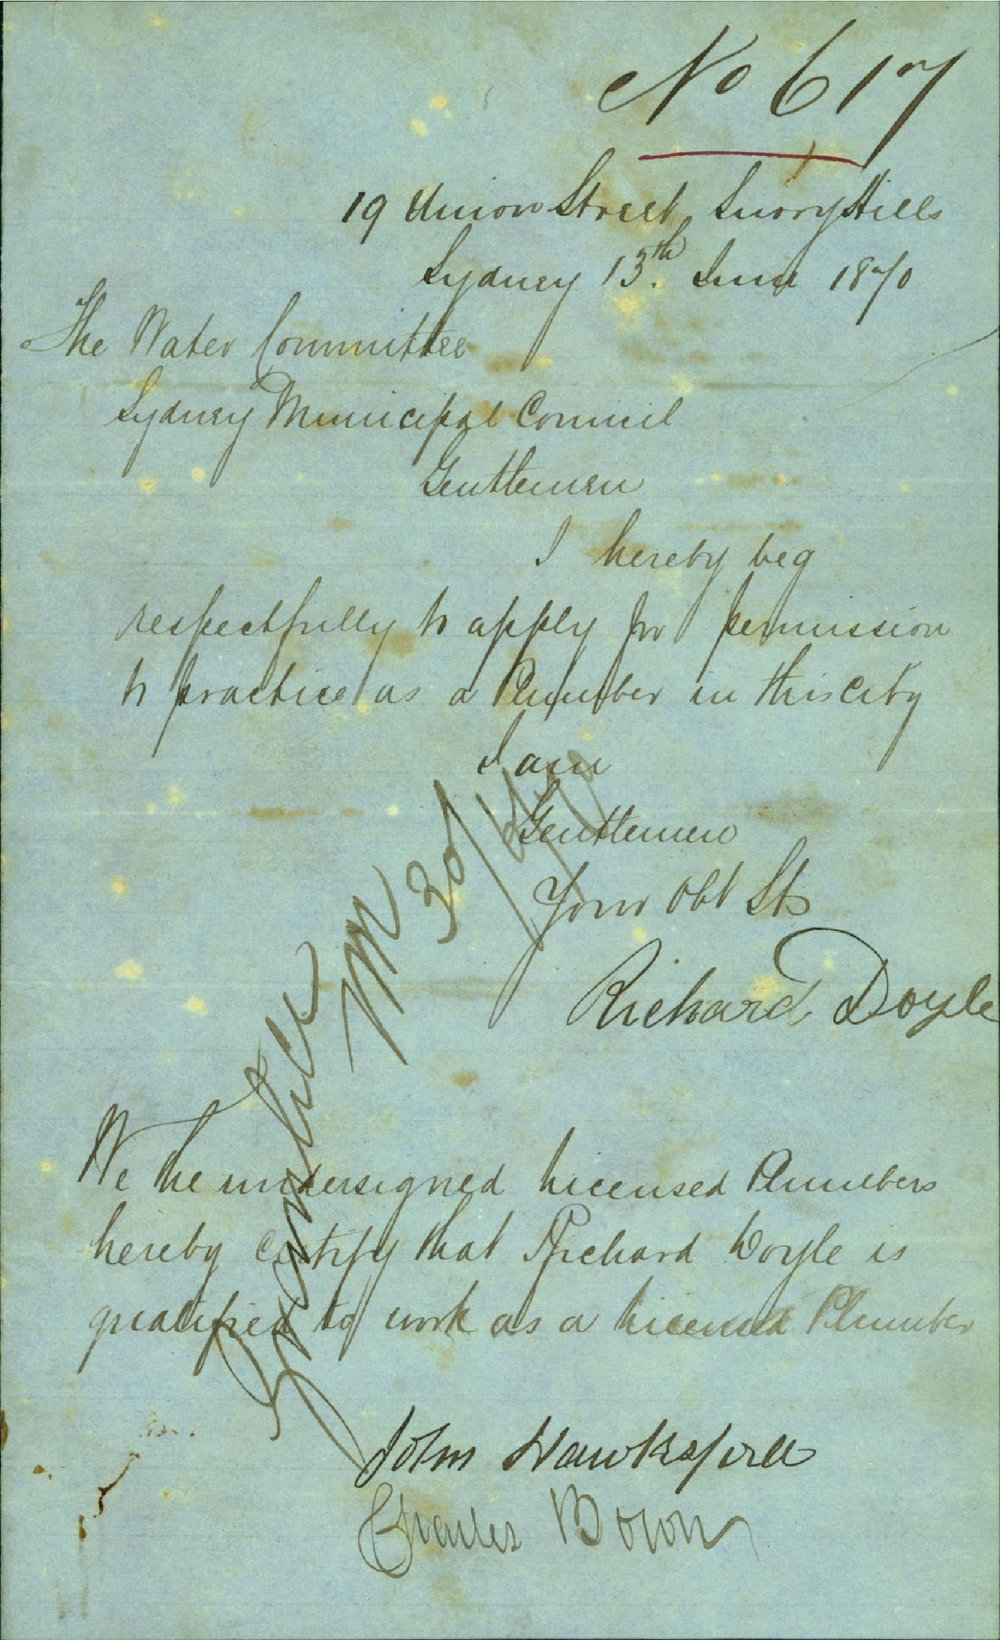 No 617
19 Union Street Surry Hills
Sydney 13th June 1870
The Water Committee
Sydney Municipal Council
Gentlemen
I hereby beg
respectfully to apply for permission
to practice as a Plumber in this City
I am
Gentlemen
Your Obt St
Richard Doyle
Granted
M 30/
We the undersigned Licensed Plumbers
hereby certify that Richard Doyle is
qualified to work as a Licensed Plumber
John
Charles Bown